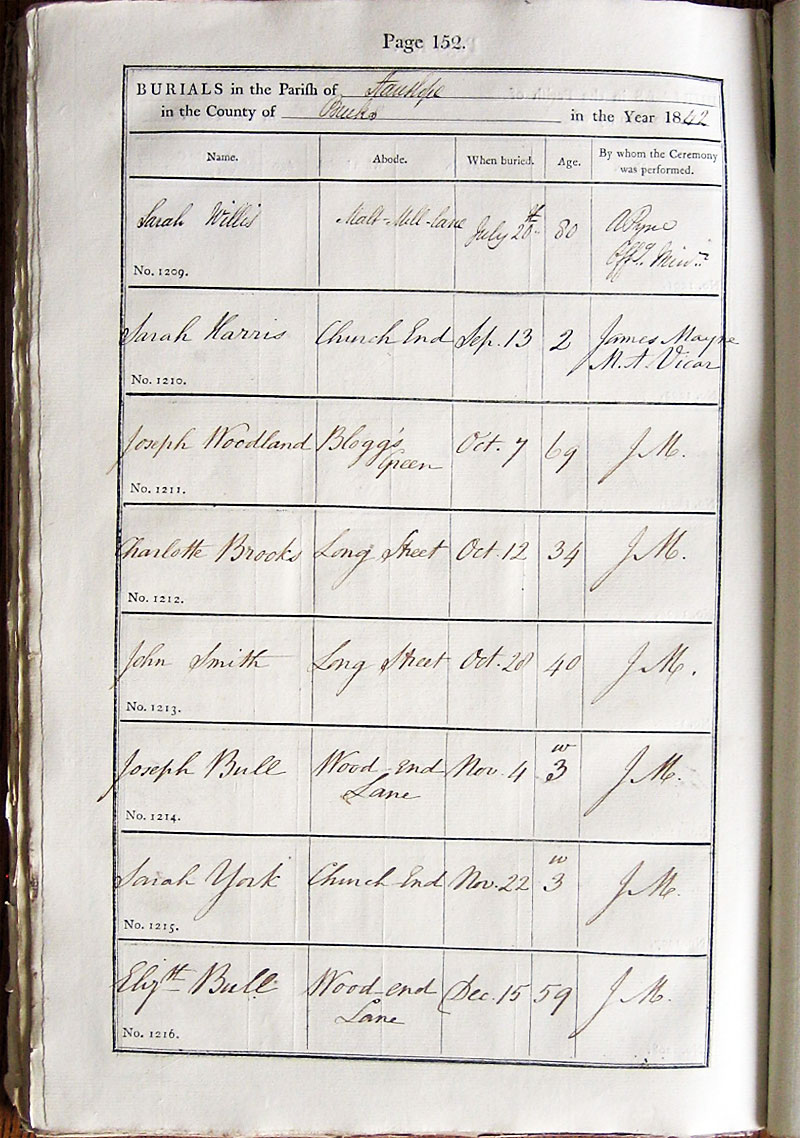 Page 152.
BURIALS in the Parish of Hanslope
in the County of Bucks in the Year 1842
Name. Abode. When buried. Age. By whom the Ceremony was performed.
Sarah Willis Malt-Mill-lane July 20th 80 A Pyne
Offg. Minr.
No. 1209.
Sarah Harris Church End Sep. 13 2 James Mayne
M. A Vicar
No. 1210.
Joseph Woodland Blogg's Oct. 7 69 J M.
Green
No. 1211.
Charlotte Brooks Long Street Oct. 12 34 J M.
No. 1212.
John Smith Long Street Oct. 28 40 J M.
No. 1213.
w
Joseph Bull Wood end Nov. 4 3 J M.
Lane
No. 1214.
w
Sarah York Church End Nov. 22 3 J M.
No. 1215.
Elizth Bull Wood end Dec. 15 59 J M.
Lane
No. 1216.